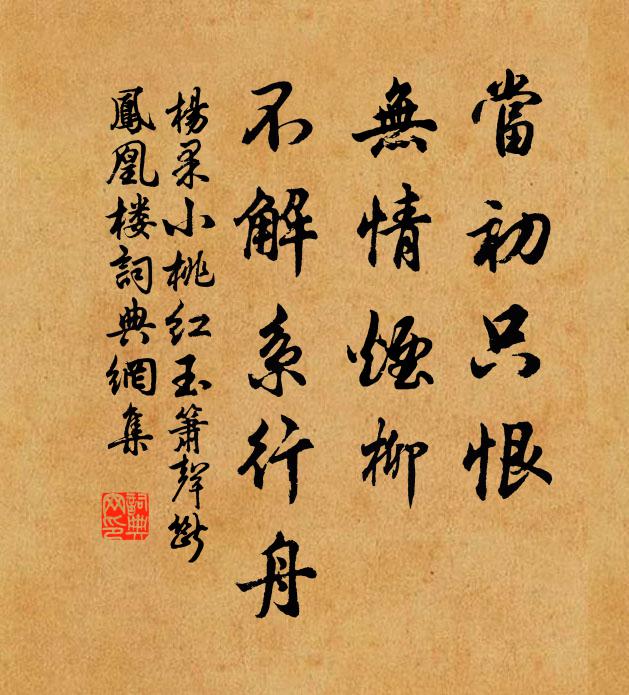 當初只恨
無情煙柳
不解系行舟
楊果小桃紅玉簫聲斷
鳳凰樓詞典網集
詞典網印